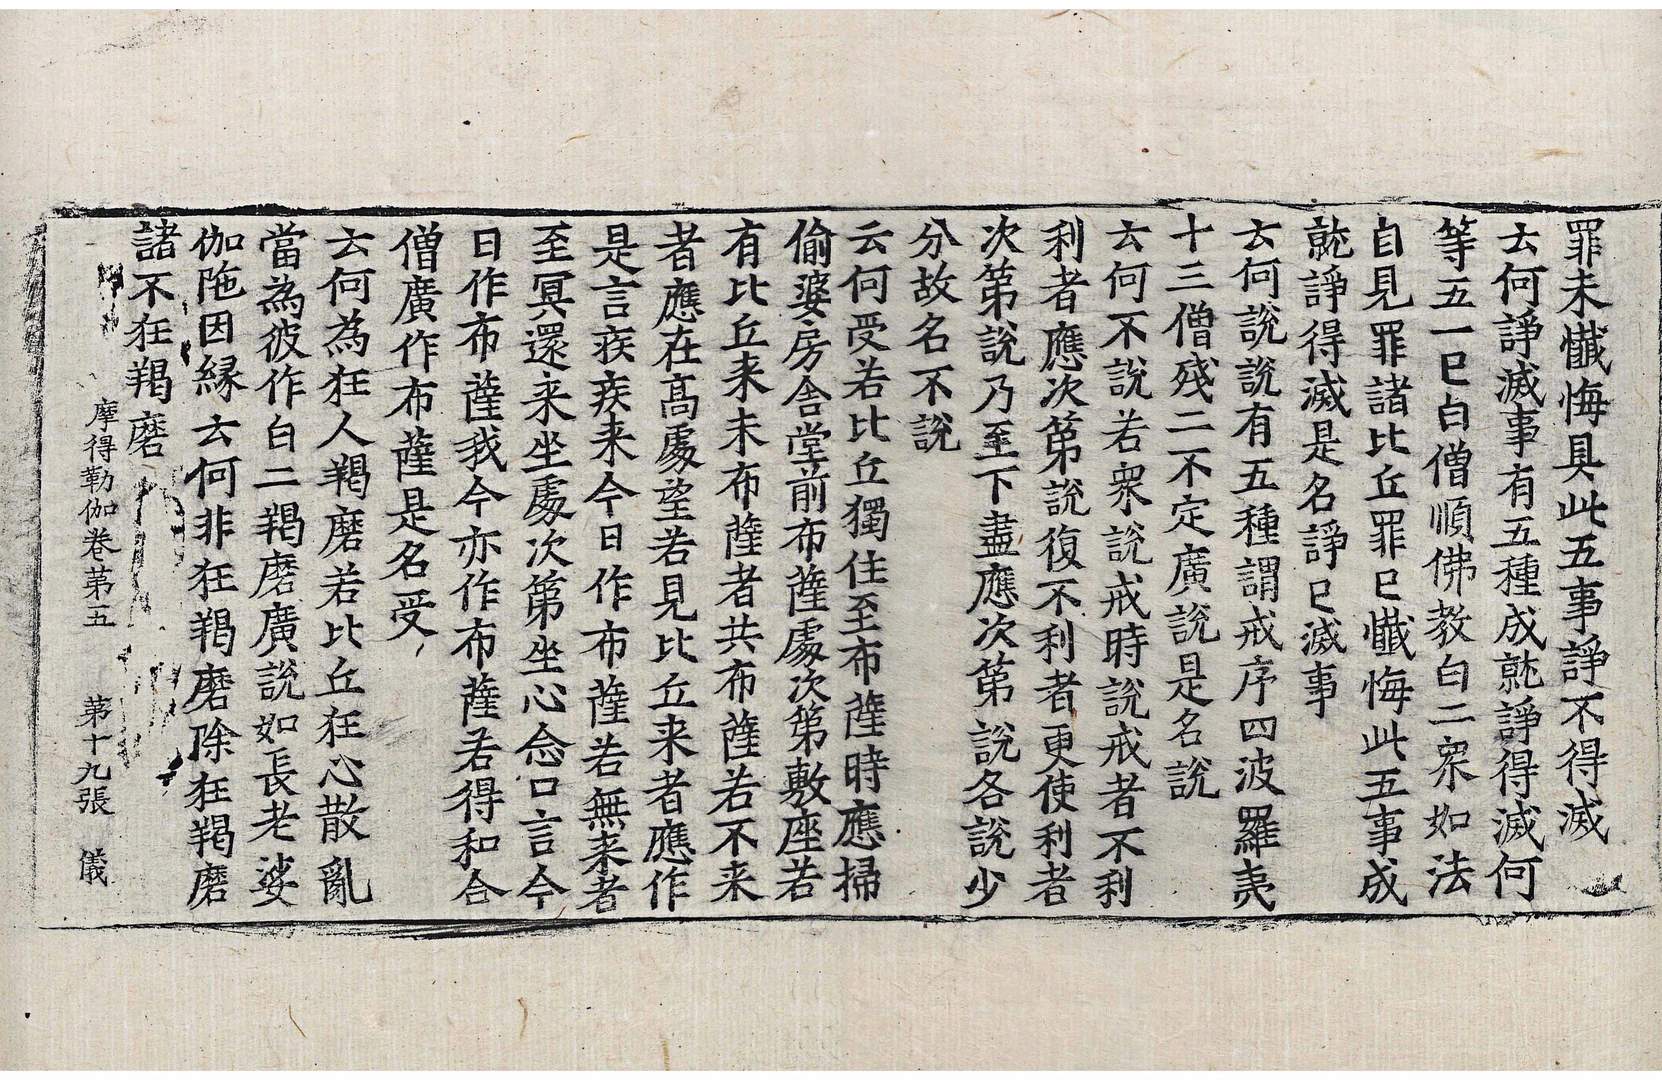 罪未懺悔具此五事諍不得滅
云何諍滅事有五種成就諍得滅何
等五一已白僧順佛教白二眾如法
自見罪諸比丘罪已懺悔此五事成
就諍得滅是名諍已滅事
云何說說有五種謂戒序四波羅夷
十三僧殘二不定廣說是名說
云何不說若眾說戒時說戒者不利
利者應次第說復不利者更使利者
次第說乃至下盡應次第說各說少
分故名不說
云何受若比丘獨住至布薩時應掃
偷婆房舍堂前布薩處次第敷座若
有比丘来未布薩者共布薩若不来
者應在高處望若見比丘来者應作
是言疾疾来今日作布薩若無来者
至冥還来坐處次第坐心念口言今
日作布薩我今亦作布薩若得和合
僧廣作布薩是名受
云何為狂人羯磨若比丘狂心散亂
當為彼作白二羯磨廣說如長老婆
伽陁因緣云何非狂羯磨除狂羯磨
諸不狂羯磨
摩得勒伽卷第五 第十九張 儀